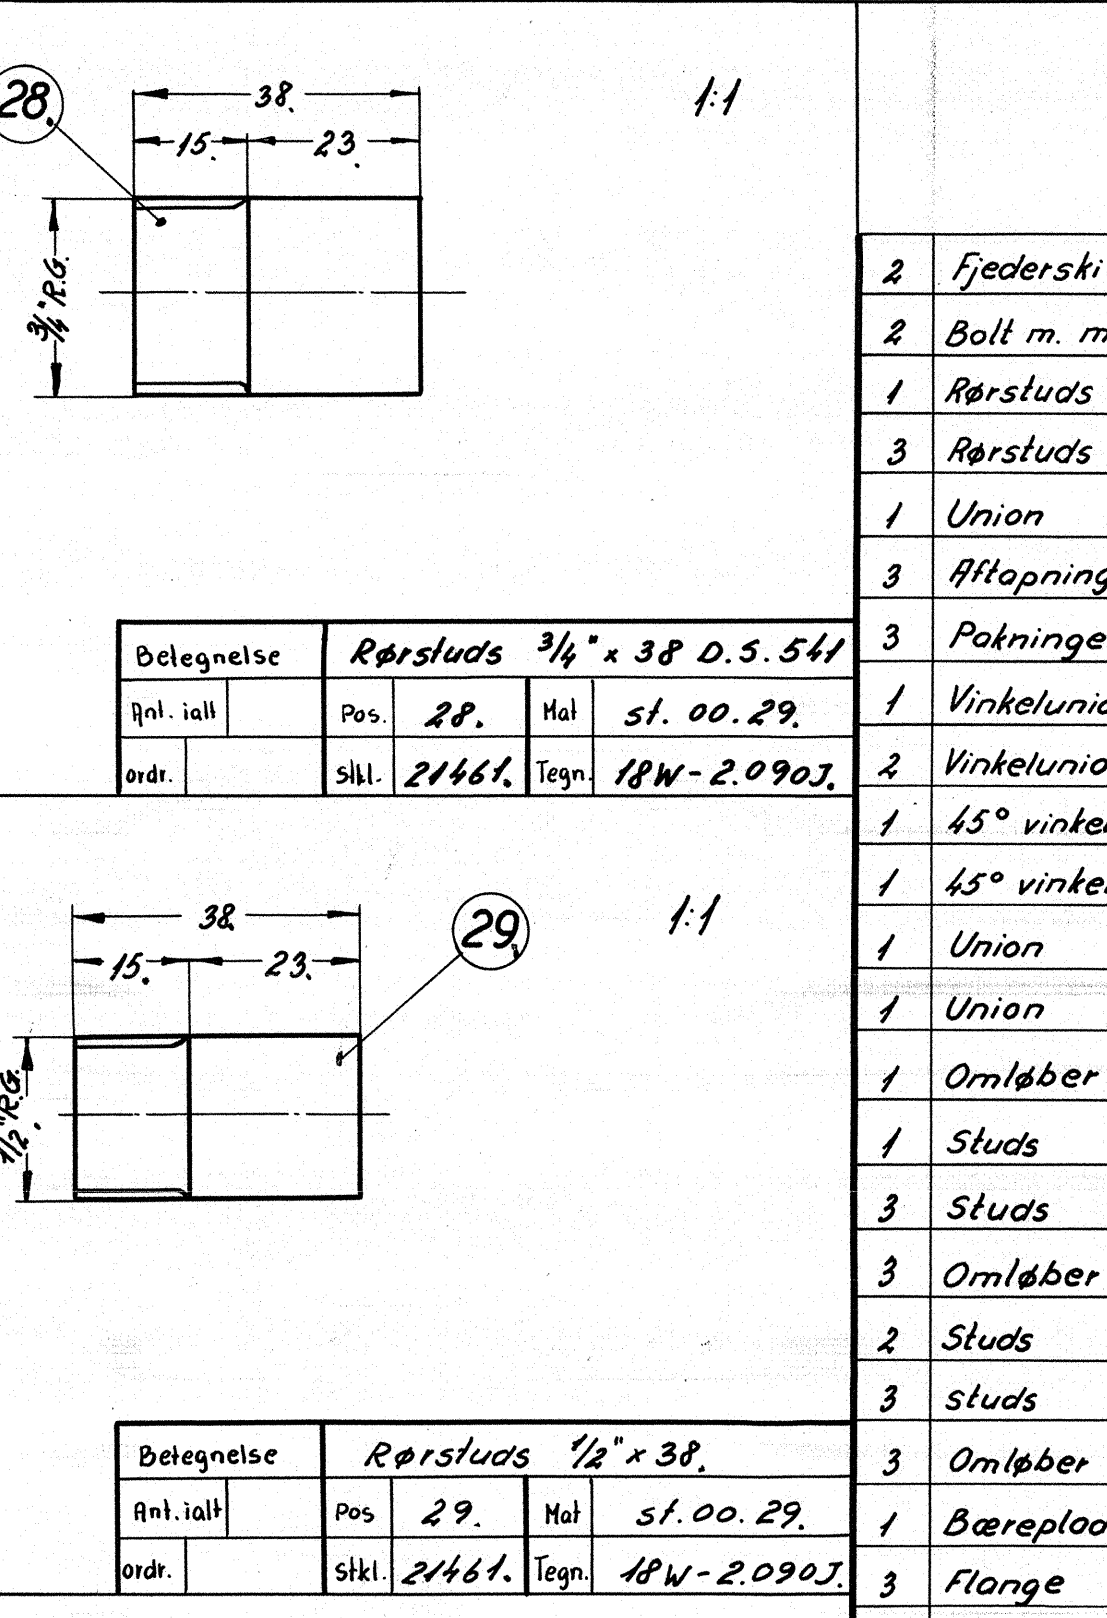 28.
38.
1:1
15.
23.
3/4" R.G.
Betegnelse
Rørstuds 3/4" x 38 D.S. 541
Ant. ialt
Pos.
28.
Mat
st. 00. 29.
ordr.
stkl.
21461.
Tegn.
18W-2.090J.
29.
38.
1:1
15.
23.
1/2" R.G.
Betegnelse
Rørstuds 1/2" x 38.
Ant. ialt
Pos
29.
Mat
st. 00. 29.
ordr.
stkl.
21461.
Tegn.
18W-2.090J.
2 Fjederski
2 Bolt m. m
1 Rørstuds
3 Rørstuds
1 Union
3 Aftapning
3 Pakninge
1 Vinkelunio
2 Vinkelunio
1 45° vinkel
1 45° vinkel
1 Union
1 Union
1 Omløber
1 Studs
3 Studs
3 Omløber
2 Studs
3 studs
3 Omløber
1 Bæreplad
3 Flange